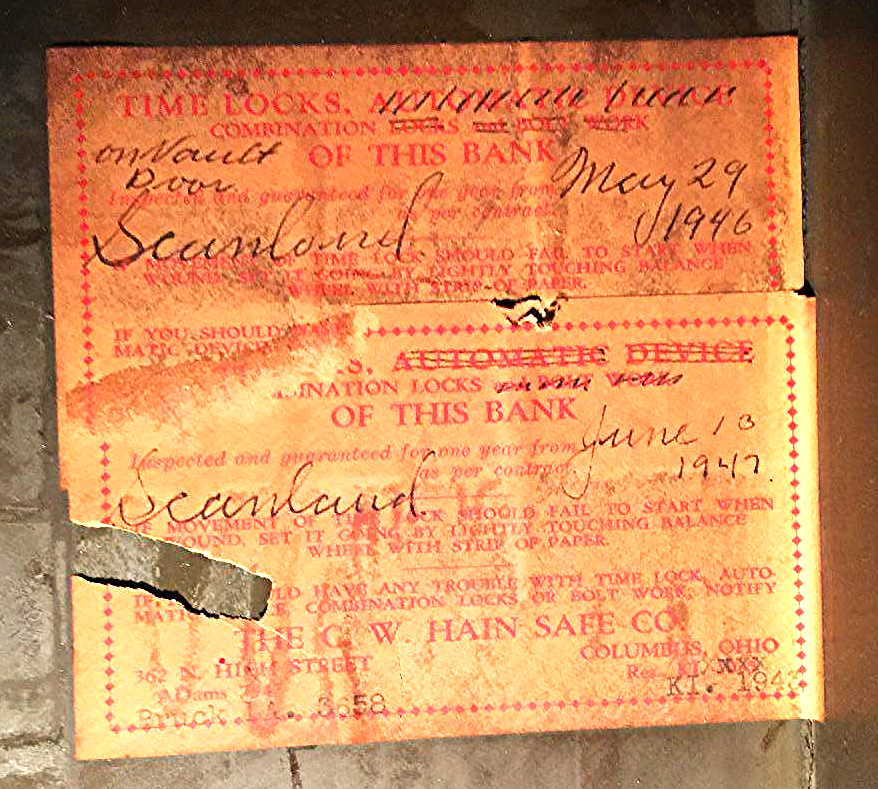 TIME LOCKS, AUTOMATIC DEVICE
COMBINATION LOCKS and BOLT WORK
on Vault OF THIS BANK
Door
Inspected and guaranteed for one year from May 29
as per contract. 1946
Scanland
MOVEMENT TIME LOCK SHOULD FAIL TO START WHEN
WOUND, SET IT GOING BY LIGHTLY TOUCHING BALANCE
WHEEL WITH STRIP OF PAPER.
IF YOU SHOULD
MATIC DEVICE
S, AUTOMATIC DEVICE
INATION LOCKS
OF THIS BANK
Inspected and guaranteed for one year from June 13
as per contract. 1947.
Scanland
IF MOVEMENT OF LOCK SHOULD FAIL TO START WHEN
WOUND, SET IT GOING BY LIGHTLY TOUCHING BALANCE
WHEEL WITH STRIP OF PAPER.
LD HAVE ANY TROUBLE WITH TIME LOCK, AUTO-
MATIC COMBINATION LOCKS OR BOLT WORK, NOTIFY
THE C. W. HAIN SAFE CO.
362 N. HIGH STREET COLUMBUS, OHIO
ADams Res.
Bruck LA. 3658 KI. 1943